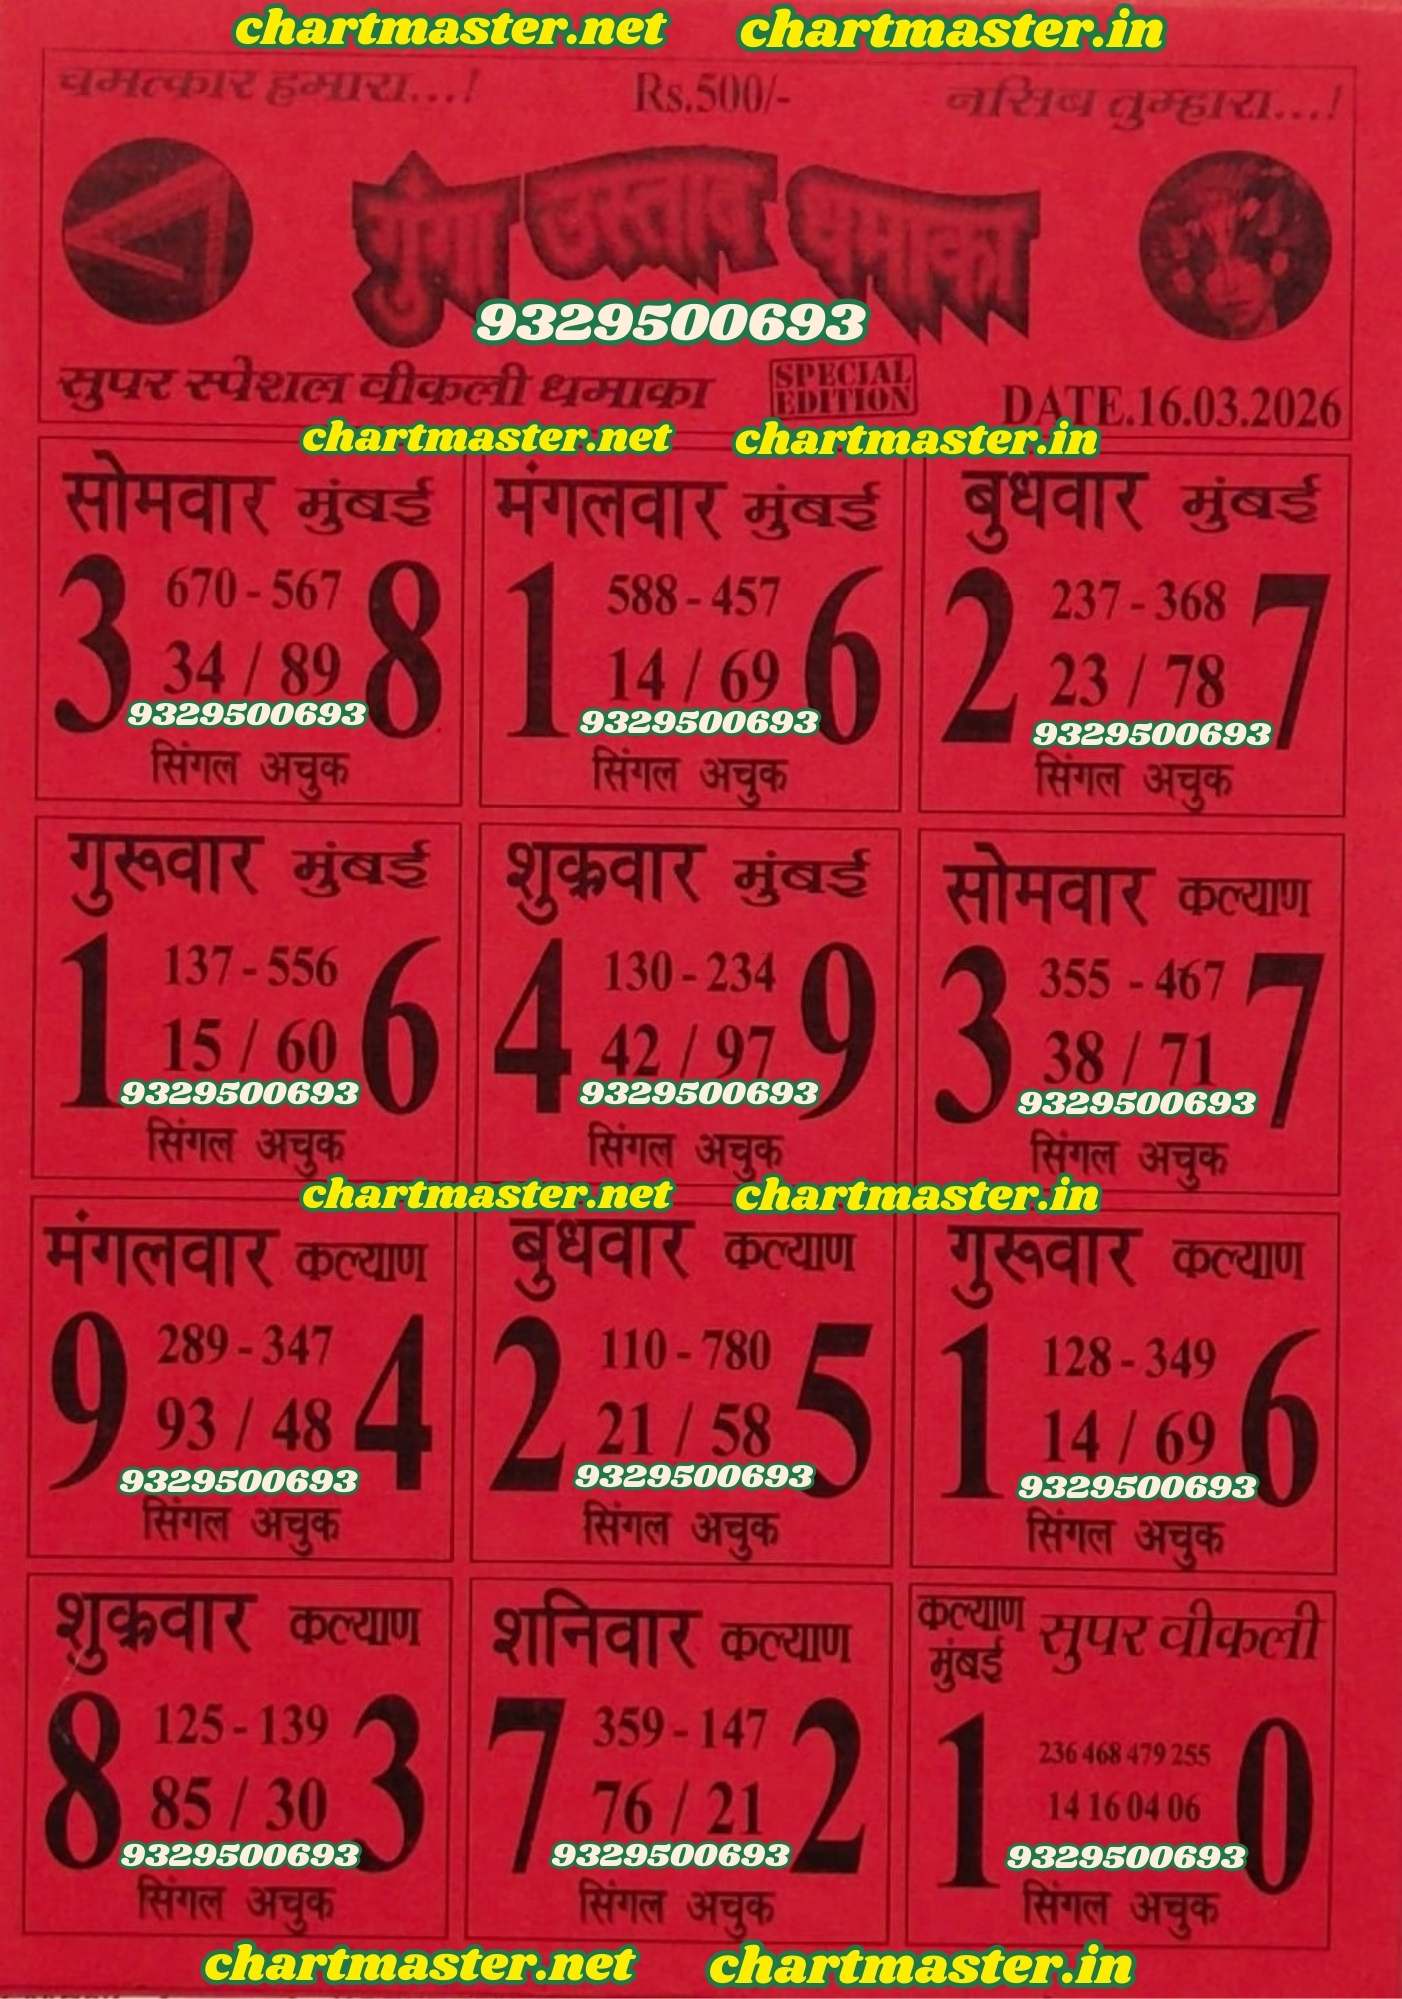 chartmaster.net chartmaster.in
चमत्कार हमारा...! Rs.500/- नसिब तुम्हारा...!
गुंगा उस्ताद धमाका
9329500693
सुपर स्पेशल वीकली धमाका SPECIAL EDITION DATE.16.03.2026
chartmaster.net chartmaster.in
सोमवार मुंबई
3 670-567 8
34 / 89
9329500693
सिंगल अचुक
मंगलवार मुंबई
1 588-457 6
14 / 69
9329500693
सिंगल अचुक
बुधवार मुंबई
2 237-368 7
23 / 78
9329500693
सिंगल अचुक
गुरूवार मुंबई
1 137-556 6
15 / 60
9329500693
सिंगल अचुक
शुक्रवार मुंबई
4 130-234 9
42 / 97
9329500693
सिंगल अचुक
सोमवार कल्याण
3 355 -467 7
38 / 71
9329500693
सिंगल अचुक
chartmaster.net chartmaster.in
मंगलवार कल्याण
9 289-347 4
93 / 48
9329500693
सिंगल अचुक
बुधवार कल्याण
2 110-780 5
21 / 58
9329500693
सिंगल अचुक
गुरूवार कल्याण
1 128-349 6
14 / 69
9329500693
सिंगल अचुक
शुक्रवार कल्याण
8 125-139 3
85 / 30
9329500693
सिंगल अचुक
शनिवार कल्याण
7 359-147 2
76 / 21
9329500693
सिंगल अचुक
कल्याण मुंबई सुपर वीकली
1 236 468 479 255 0
14 16 04 06
9329500693
सिंगल अचुक
chartmaster.net chartmaster.in